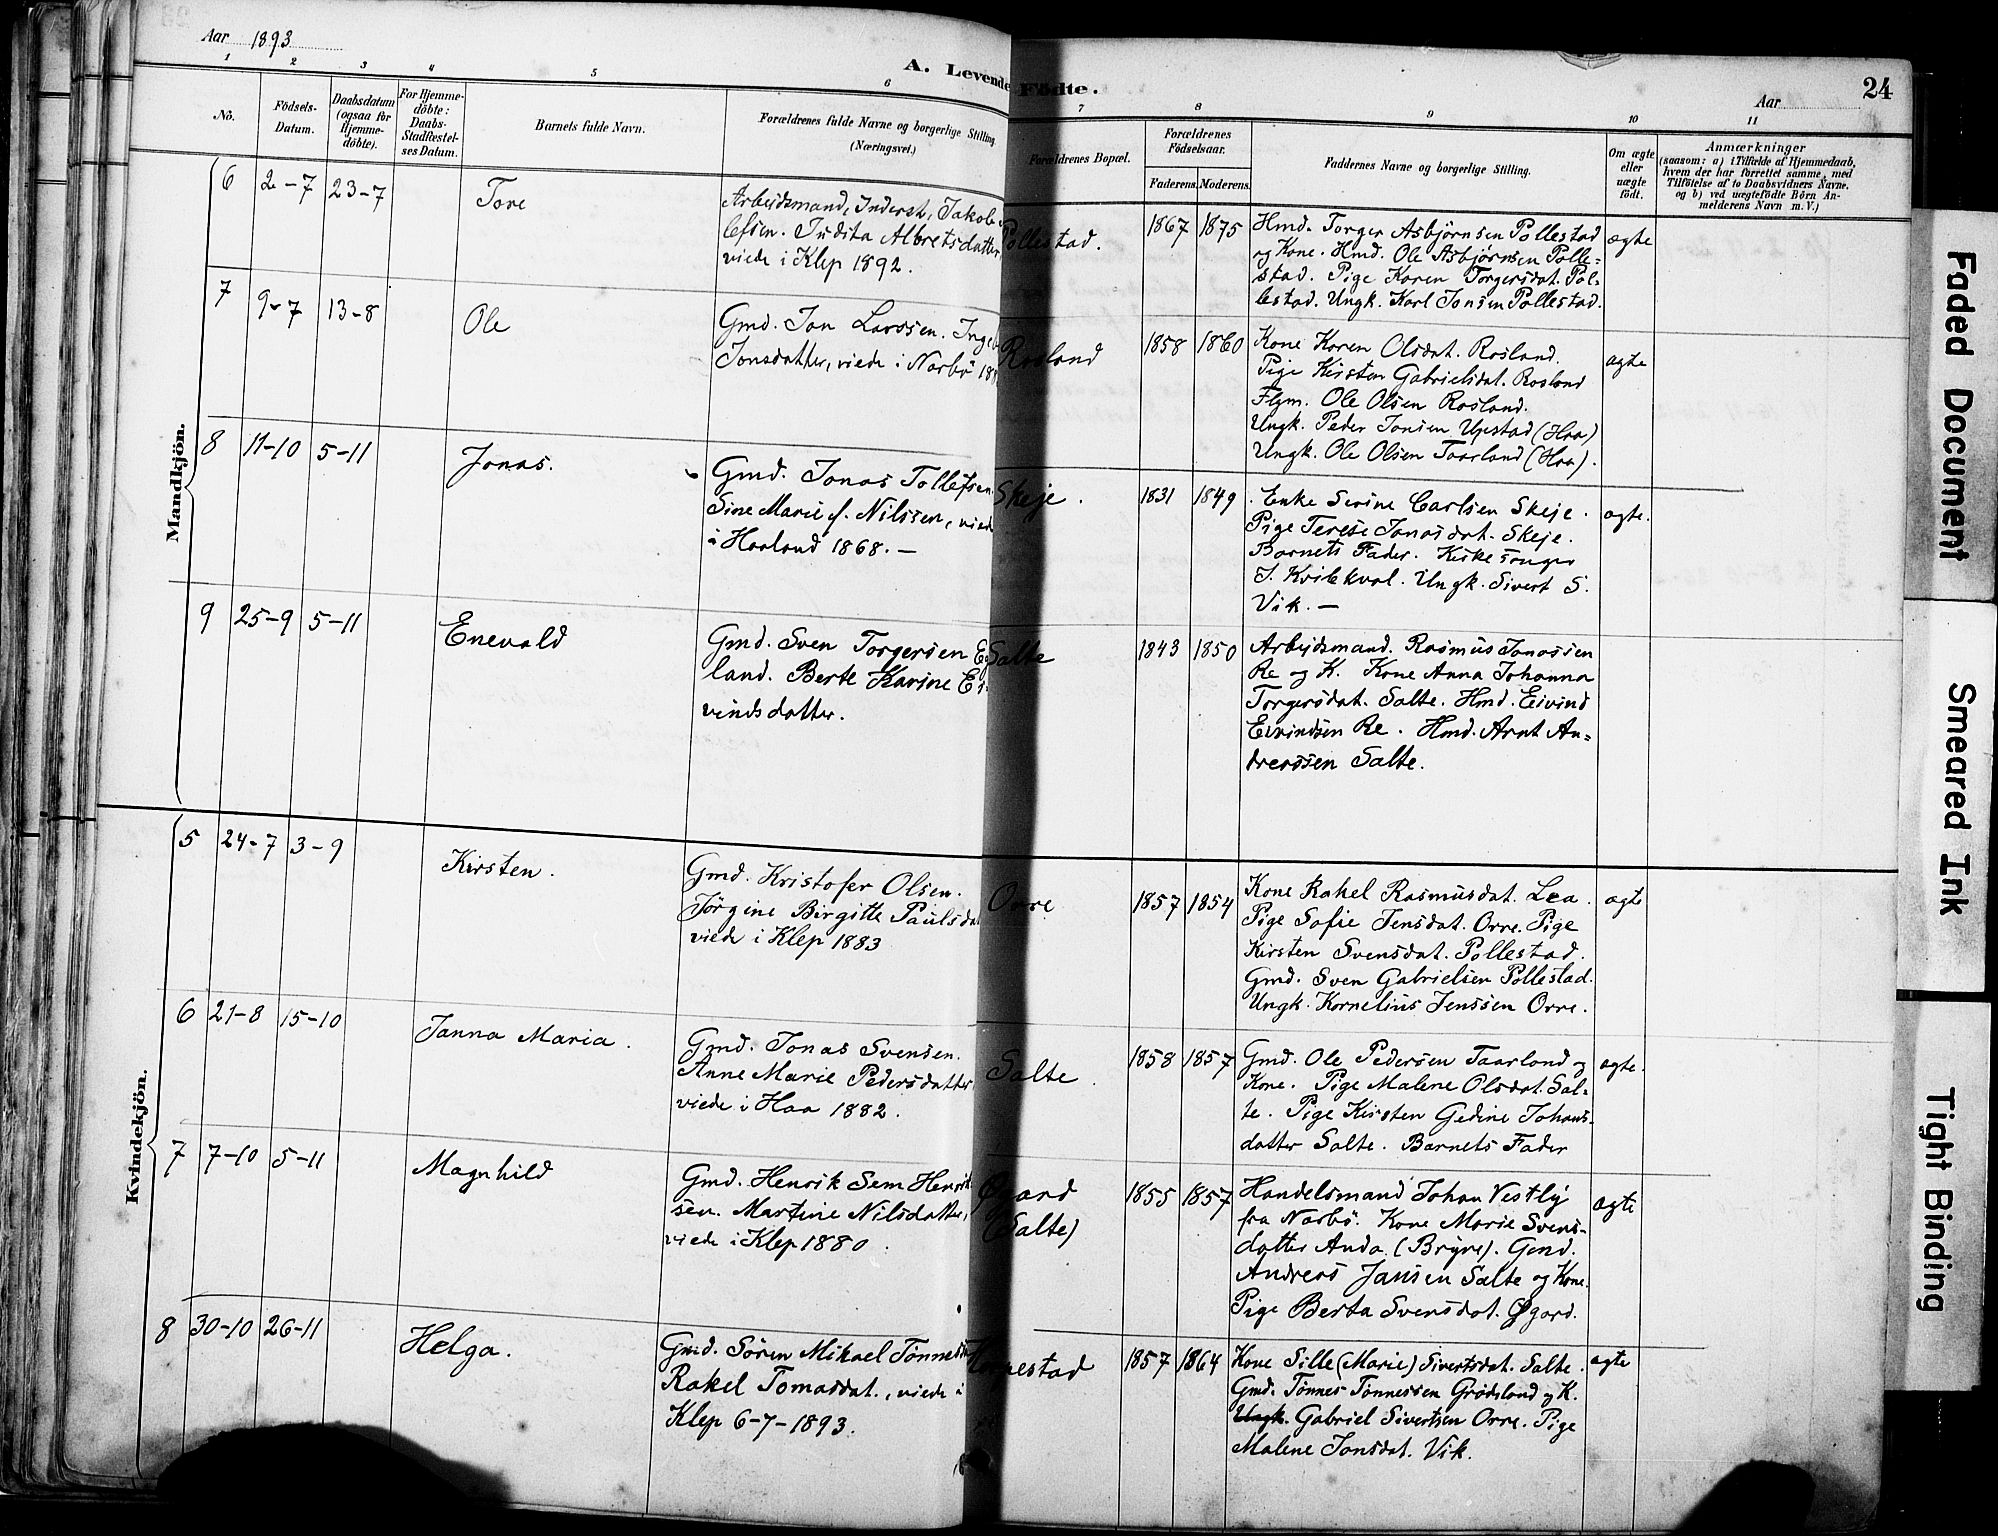 Aar 1893
A. Levende Födte.
Aar
24
1 2 3 4 5 6 7 8 9 10 11
No.
Födsels-
Datum.
Daabsdatum
(ogsaa for
Hjemme-
döbte).
For Hjemme-
döbte:
Daabs-
Stadfæstel-
ses Datum.
Barnets fulde Navn.
Forældrenes fulde Navne og borgerlige Stilling
(Næringsvei.)
Forældrenes Bopæl.
Forældrenes
Födselsaar.
Faderens. Moderens.
Faddernes Navne og borgerlige Stilling.
Om ægte
eller
uægte
födt.
Anmærkninger
(saasom: a) i Tilfælde af Hjemmedaab,
hvem der har forrettet samme, med
Tilföielse af to Daabsvidners Navne.
og b) ved uægtefödte Börn An-
melderens Navn m. V.)
Mandkjön.
6 2-7 23-7 Tore
Arbejdsmand, Inderst, Jakob
lefsen. Judita Albretsdatter
viede i Klep 1892.
Pollestad.
1867 1875
Hmd. Torger Asbjørnsen Pollestad
og Kone. Hmd. Ole Asbjørnsen Polle=
stad. Pige Karen Torgersdat. Pol-
lestad. Ungk. Karl Jonsen Pollestad.
ægte
7 9-7 13-8 Ole
Gmd. Jon Larssen. Ingeb
Jonsdatter, viede i Narbö 18
Rosland
1858 1860
Kone Karen Olsdat. Rosland.
Pige Kirsten Gabrielsdat. Rosland
Flgm. Ole Olsen Rosland.
Ungk. Peder Jonsen Upstad (Haa)
Ungk. Ole Olsen Taarland (Haa).
ægte
8 11-10 5-11 Jonas.
Gmd. Jonas Tollefsen
Sine Marie f. Nilssen, viede
i Haaland 1868. —
Skeje.
1831 1849
Enke Serine Carlsen Skeje.
Pige Terese Jonasdat. Skeje.
Barnets Fader. Kirkesanger
J. Kvilekval. Ungk. Sivert S.
Vik. —
ægte.
9 25-9 5-11 Enevald
Gmd. Sven Torgersen Eg
land. Berte Karine Ei-
vindsdatter.
Salte
1843 1850
Arbejdsmand. Rasmus Jonassen
Re og K. Kone Anna Johanna
Torgersdat. Salte. Hmd. Eivind
Eivindsen Re. Hmd. Arnt An=
dreassen Salte.
Kvindekjön.
5 24-7 3-9 Kirsten.
Gmd. Kristofer Olsen.
Jörgine Birgitte Paulsda
viede i Klep 1883
Orre
1857 1854
Kone Rakel Rasmusdat. Lea.
Pige Sofie Jensdat. Orre. Pige
Kirsten Svensdat. Pollestad.
Gmd. Sven Gabrielsen Pollestad.
Ungk. Kornelius Jenssen Orre.
ægte
6 21-8 15-10 Janna Maria.
Gmd. Jonas Svensen.
Anne Marie Pedersdatter
viede i Haa 1882.
Salte.
1858 1857
Gmd. Ole Pedersen Taarland og
Kone. Pige Malene Olsdat. Sal=
te. Pige Kirsten Gedine Johans-
datter Salte. Barnets Fader
ægte.
7 7-10 5-11 Magnhild
Gmd. Henrik Sem Henrik
sen. Martine Nilsdatter,
viede i Klep 1880.
Øgard
(Salte)
1855 1857
Handelsmand Johan Vestly
fra Narbö. Kone Marie Svens-
datter Anda (Bryne). Gmd.
Andreas Jansen Salte og Kone.
Pige Berta Svensdat. Øgard.
ægte
8 30-10 26-11 Helga.
Gmd. Sören Mikael Tönnes
Rakel Tomasdat., viede i
Klep 6-7-1893.
nestad
1857 1864
Kone Sille (Marie) Sivertsdat. Salte.
Gmd. Tönnes Tönnessen Grödeland og K.
Ungk. Gabriel Sivertsen Orre. Pige
Malene Jonsdat. Vik.
ægte
Faded Document
Smeared Ink
Tight Binding